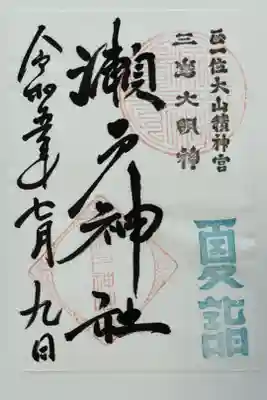 正一位大山積神宮
三嶌大明神
瀬戸神社
令和五年七月九日
夏詣